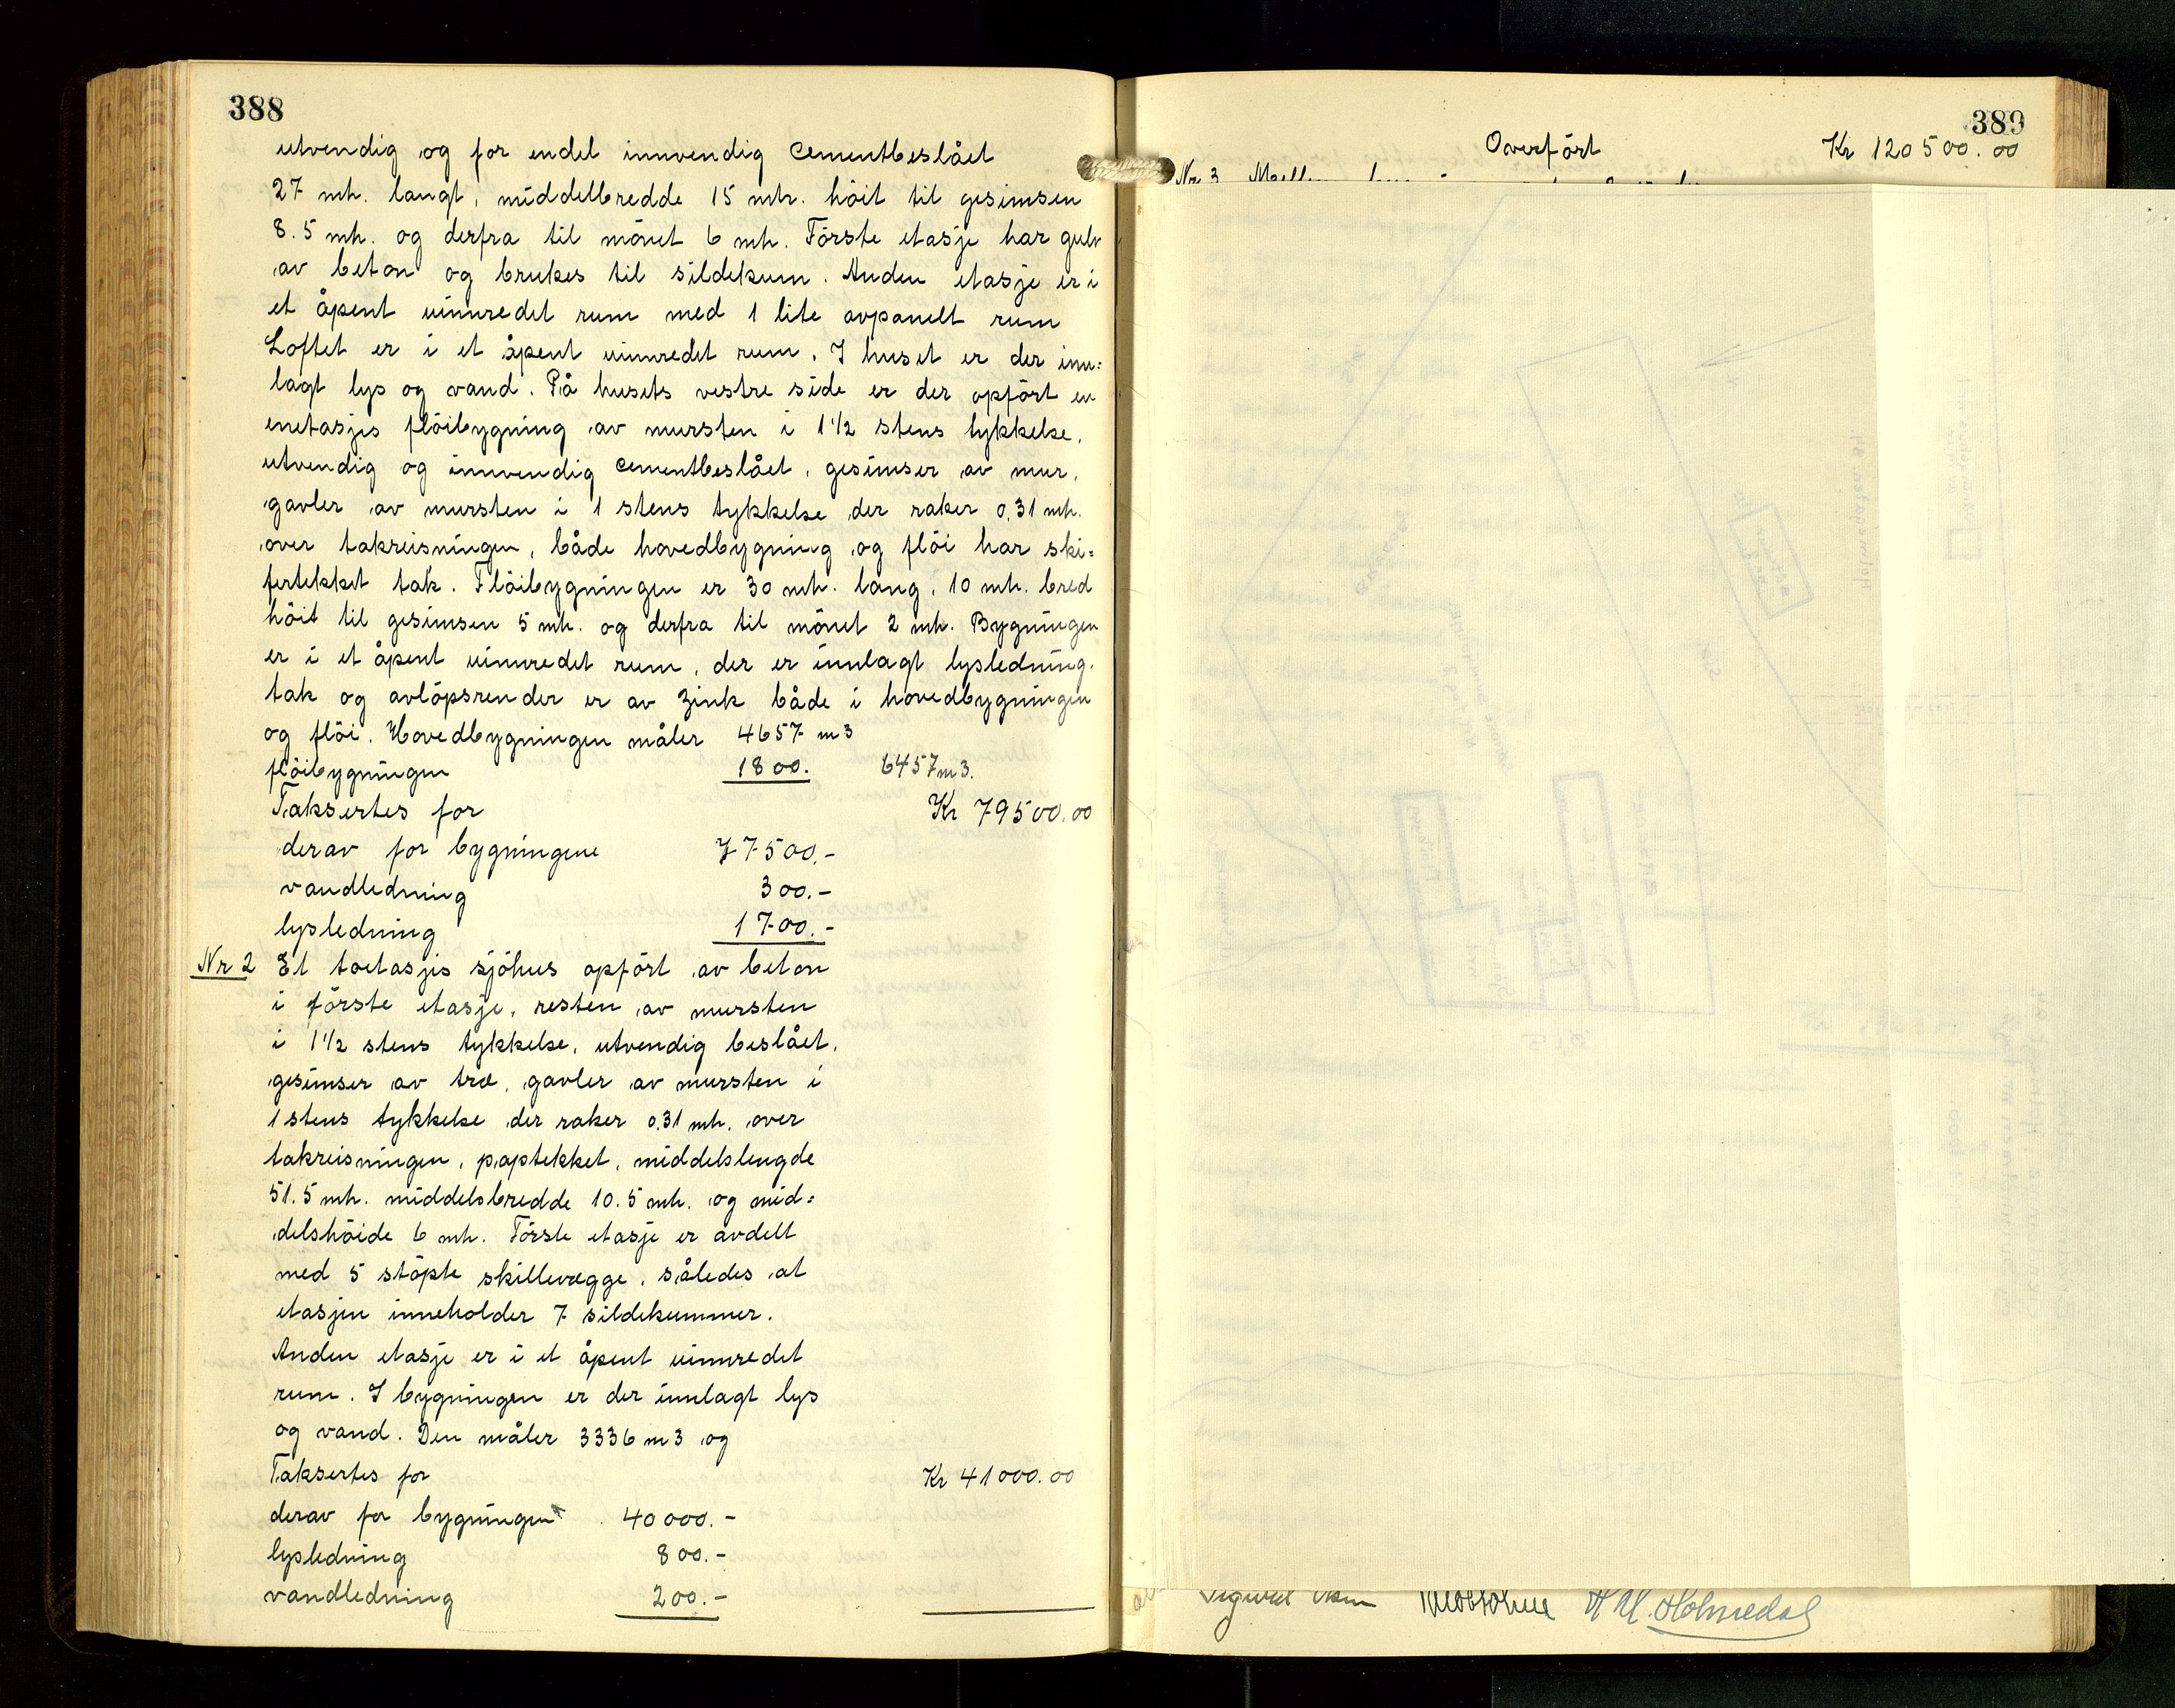 388
utvendig og for endel innvendig cementbeslået
27 mtr. langt, middelbredde 15 mtr. höit til gesimsen
8.5 mtr. og derfra til mönet 6 mtr. Förste etasje har gulv
av beton og brukes til sildekum. Anden etasje er i
et åpent uinnredet rum med 1 lite avpanelt rum
Loftet er i et åpent uinnredet rum. I huset er der inn=
lagt lys og vand. På husets vestre side er der opfört en
enetasjes flöibygning av mursten i 1 1/2 stens tykkelse,
utvendig og innvendig cementbeslået, gesimser av mur,
gavler av mursten i 1 stens tykkelse der raker 0,31 mtr.
over takreisningen, både hovedbygning og flöi har ski=
fertekket tak. Flöibygningen er 30 mtr. lang, 10 mtr. bred
höit til gesimsen 5 mtr. og derfra til mönet 2 mtr. Bygningen
er i et åpent uinnredet rum, der er innlagt lysledning.
tak og avlöpsrender er av zink både i hovedbygningen
og flöi. Hovedbygningen måler 4657 m3
flöibygningen 1800. 6457 m3.
Taksertes for Kr 79500.00
derav for bygningene 77500.-
vandledning 300.-
lysledning 1700.-
Nr 2 Et toetasjes sjöhus opfört av beton
i förste etasje, resten av mursten
i 1 1/2 stens tykkelse, utvendig beslået,
gesimser av træ, gavler av mursten i
1 stens tykkelse der raker 0.31 mtr. over
takreisningen, paptekket, middelslengde
51.5 mtr. middelsbredde 10.5 mtr. og mid=
delshöide 6 mtr. Förste etasje er avdelt
med 5 stöpte skillevægge, således at
etasjen inneholder 7 sildekummer.
Anden etasje er i et åpent uinnredet
rum. I bygningen er der innlagt lys
og vand. Den måler 3336 m3 og
Taksertes for Kr 41000.00
derav for bygningen 40000.-
lysledning 800.-
vandledning 200.-
389
Overfört Kr 120500.00
Nr 3
Sigurd H M. Holmedal